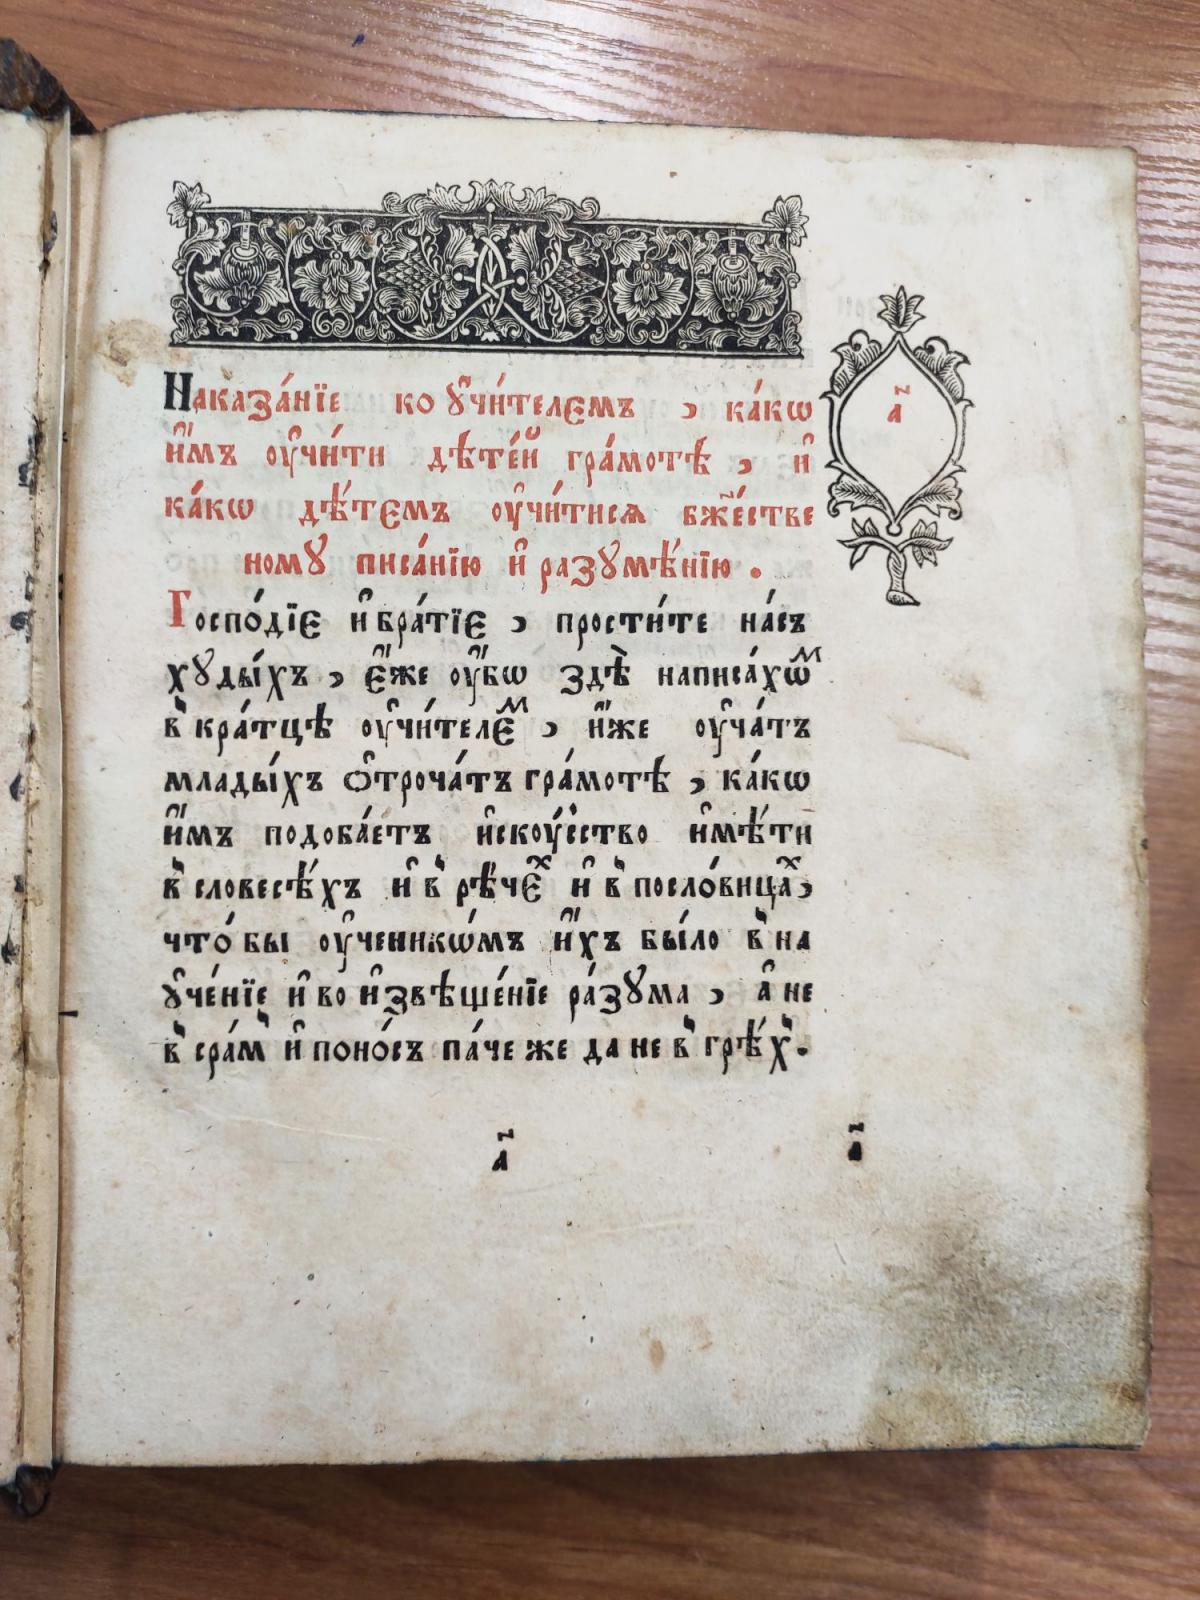 Наказа́нїе ко ᲂу҆чи́телємъ , ка́кѡ
и҆̀мъ ᲂу҆чи́ти дѣте́й гра́мотѣ , и҆
ка́кѡ дѣ́тємъ ᲂу҆чи́тисѧ бж҃е́стве
ному писа́нїю и҆ разумѣ́нїю .
Госпо́дїє и҆ бра́тїє , прости́те на́съ
худы́хъ , є҆́же ᲂу҆́бѡ здѣ̀ написа́хѡⷨ
в̾кра́тцѣ ᲂу҆чи́телєⷨ , и҆́же ᲂу҆ча́тъ
млады́хъ ѻ҆троча́тъ гра́мотѣ , ка́кѡ
и҆́мъ подоба́етъ и҆скоу́сство и҆мѣ́ти
в̾словесѣ́хъ и҆ в̾ рѣ́чєⷯ и҆ в̾ посло́вицаⷯ,
что́ бы ᲂу҆ченикѡ́мъ и҆́хъ бы́ло в̾ на
ᲂу҆че́нїе и҆ во и҆звѣще́нїе ра́зума , а҆ не
в̾ сра́м̾ и҆ поно́съ па́че же да не в̾ грѣ́х̾.
а҃
а҃
а҃